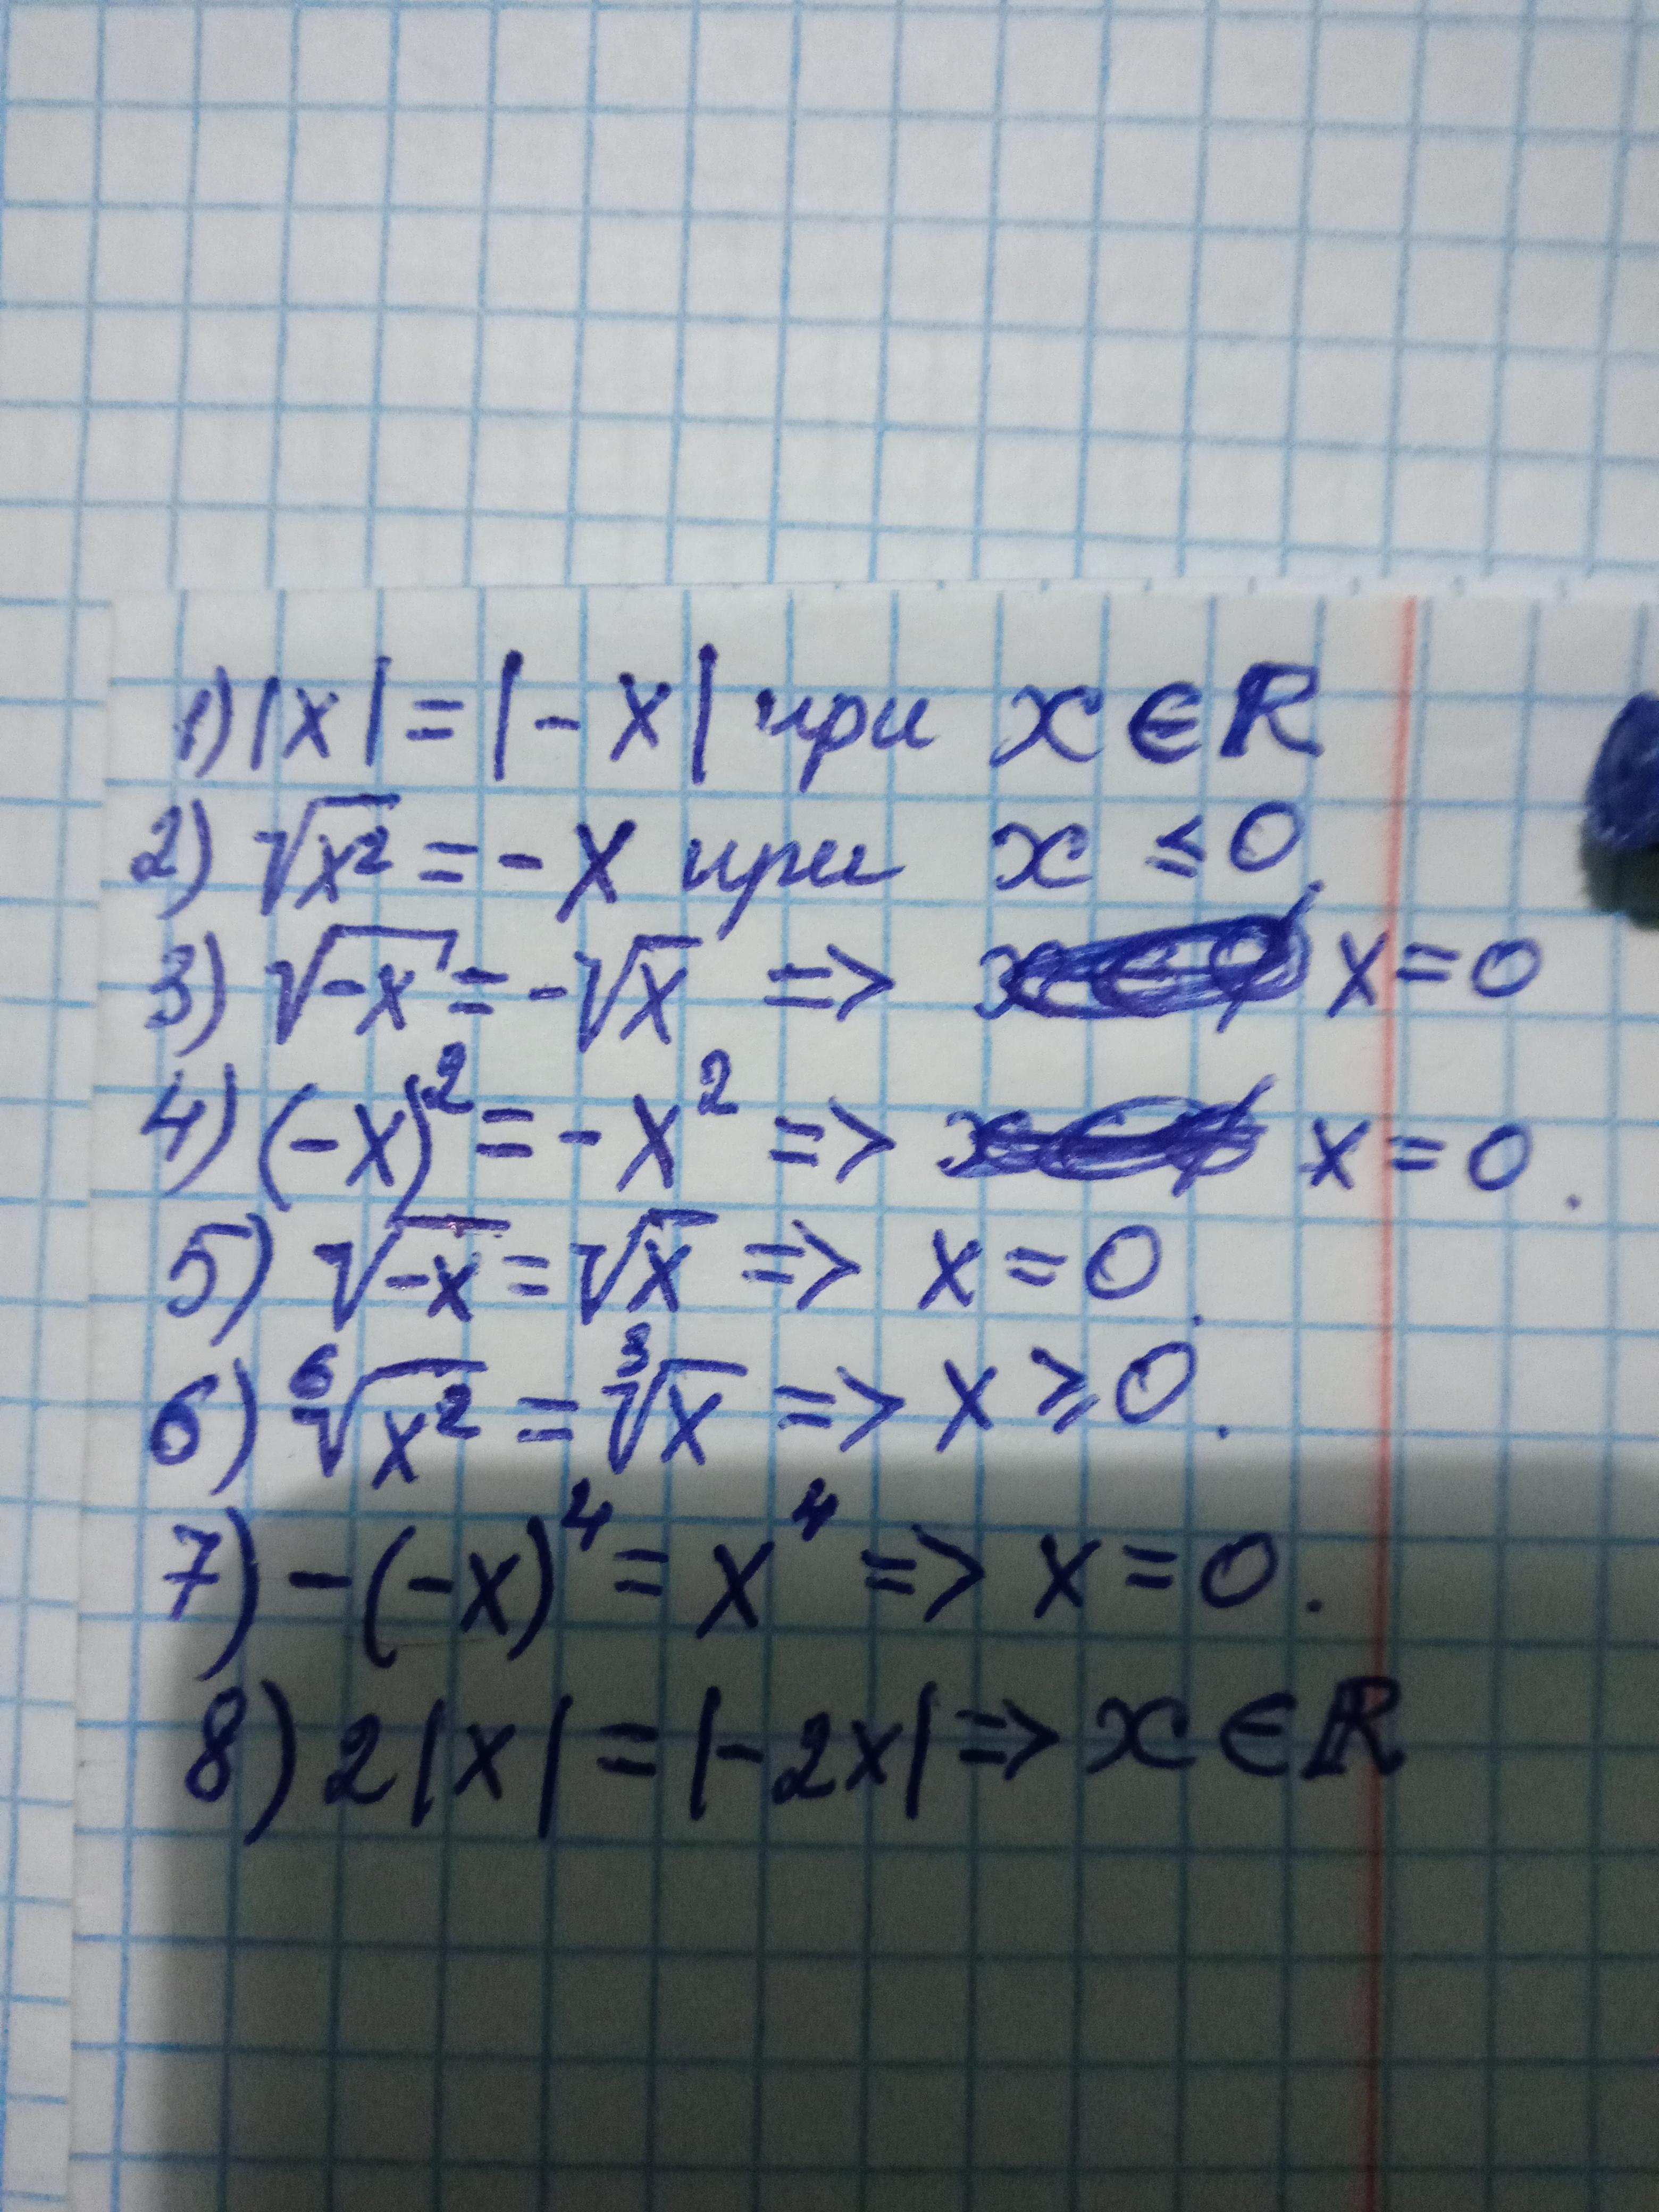 1) |x| = |-x| при x ∈ ℝ
2) √x² = -x при x ≤ 0.
3) √-x = -√x => x = 0
4) (-x)² = -x² => x = 0.
5) √-x = √x => x = 0.
6) ⁶√x² = ³√x => x ≥ 0.
7) -(-x)⁴ = x⁴ => x = 0.
8) 2|x| = |-2x| => x ∈ ℝ